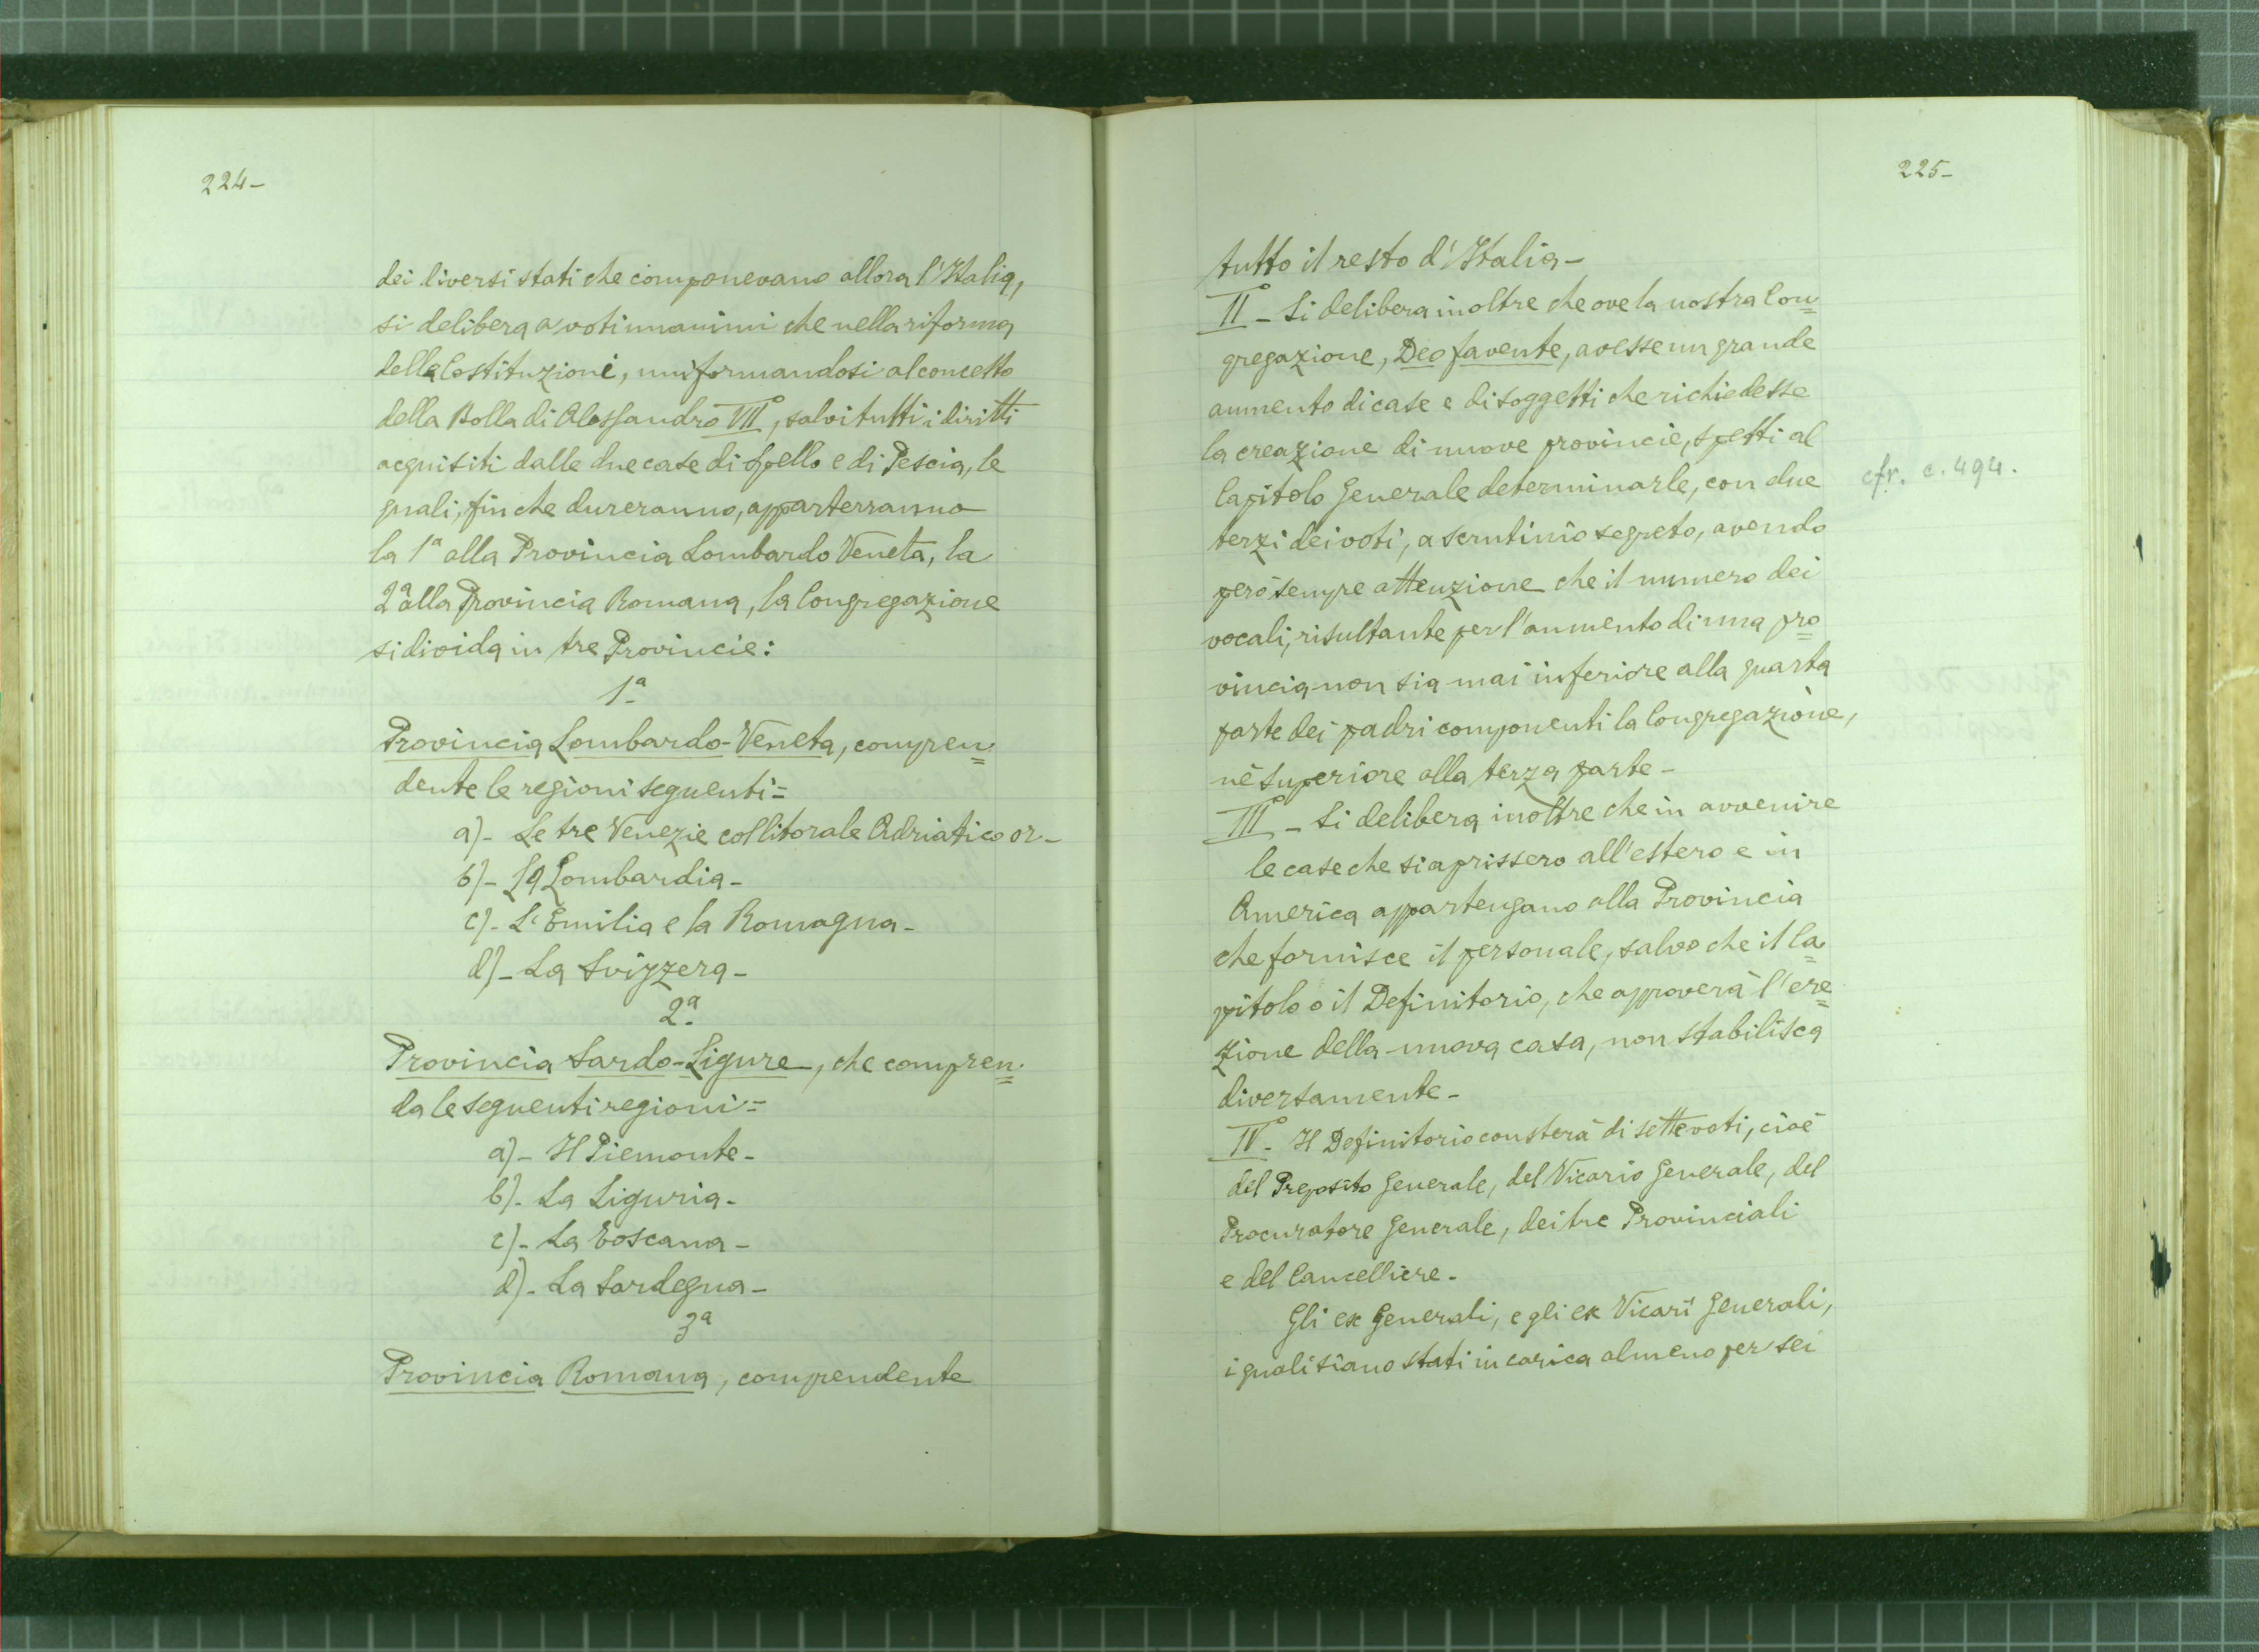 224-
dei diversi stati che componevano allora l'Italia,
si delibera a voti unanimi che nella riforma
delle Costituzioni, uniformandosi al concetto
della Bolla di Alessandro VII°, salvi tutti i diritti
acquisiti dalle due case di Spello e di Pescia, le
quali, finche dureranno, apparterranno
la 1ª alla Provincia Lombardo Veneta, la
2ª alla Provincia Romana, la Congregazione
si divida in tre Provincie:
1ª
Provincia Lombardo-Veneta, compren=
dente le regioni seguenti=
a)- Le tre Venezie col litorale Adriatico or-
b)- La Lombardia-
c)- L'Emilia e la Romagna-
d)- La Svizzera-
2ª
Provincia Sardo-Ligure, che compren=
da le seguenti regioni=
a)- Il Piemonte-
b)- La Liguria-
c)- La Toscana-
d)- La Sardegna-
3ª
Provincia Romana, compendente
225-
tutto il resto d'Italia-
II° - Si delibera inoltre che ove la nostra Con=
gregazione, Deo favente, avesse un grande
aumento di case e di soggetti che richiedesse
la creazione di nuove provincie, spetti al
Capitolo Generale determinarle, con due
terzi dei voti, a scrutinio segreto, avendo
però sempre attenzione che il numero dei
vocali, risultante per l'aumento di una pro=
vincia non sia mai inferiore alla quarta
parte dei padri componenti la Congregazione,
nè superiore alla terza parte-
III° - Si delibera inoltre che in avvenire
le case che si aprissero all'estero e in
America appartengano alla Provincia
che fornisce il personale, salvo che il Ca=
pitolo o il Definitorio, che approverà l'ere=
zione della nuova casa, non stabilisca
diversamente-
IV° - Il Definitorio consterà di sette voti, cioè
del Preposito Generale, del Vicario Generale, del
Procuratore Generale, dei tre Provinciali
e del Cancelliere-
Gli ex Generali, e gli ex Vicarî Generali,
i quali siano stati in carica almeno per sei
cfr. c. 494.